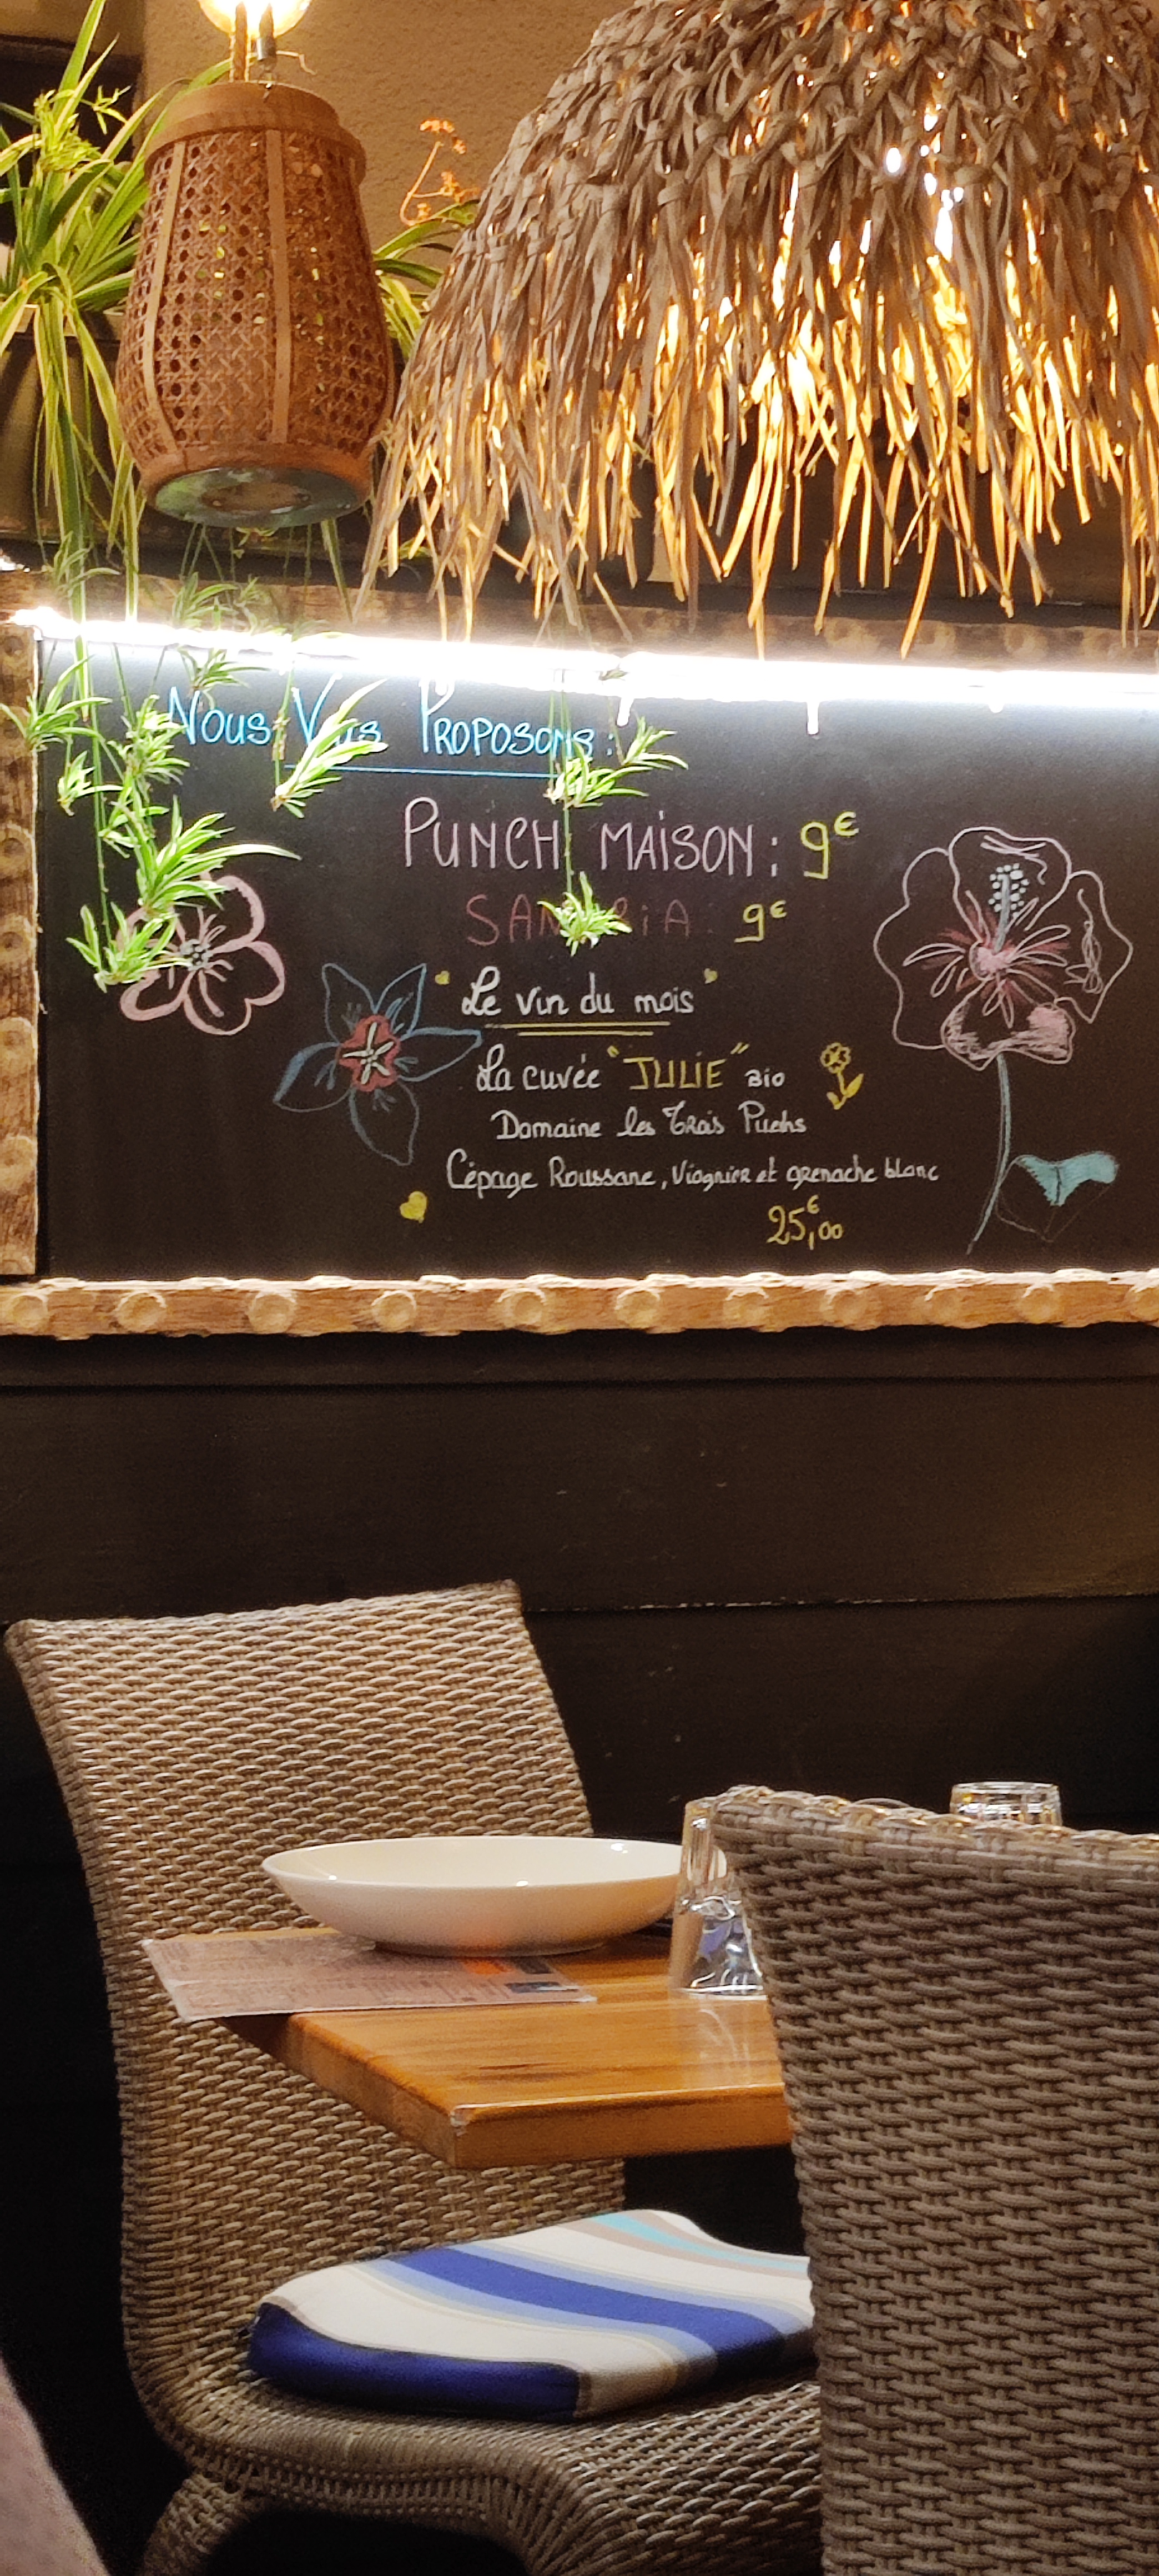 Nous Vous Proposons :
PUNCH MAiSON : 9€
SANGRiA : 9€
"Le vin du mois"
La cuvée "JULiE" Bio
Domaine les Trois Puechs
Cépage Roussane, Viognier et grenache blanc
25,00€